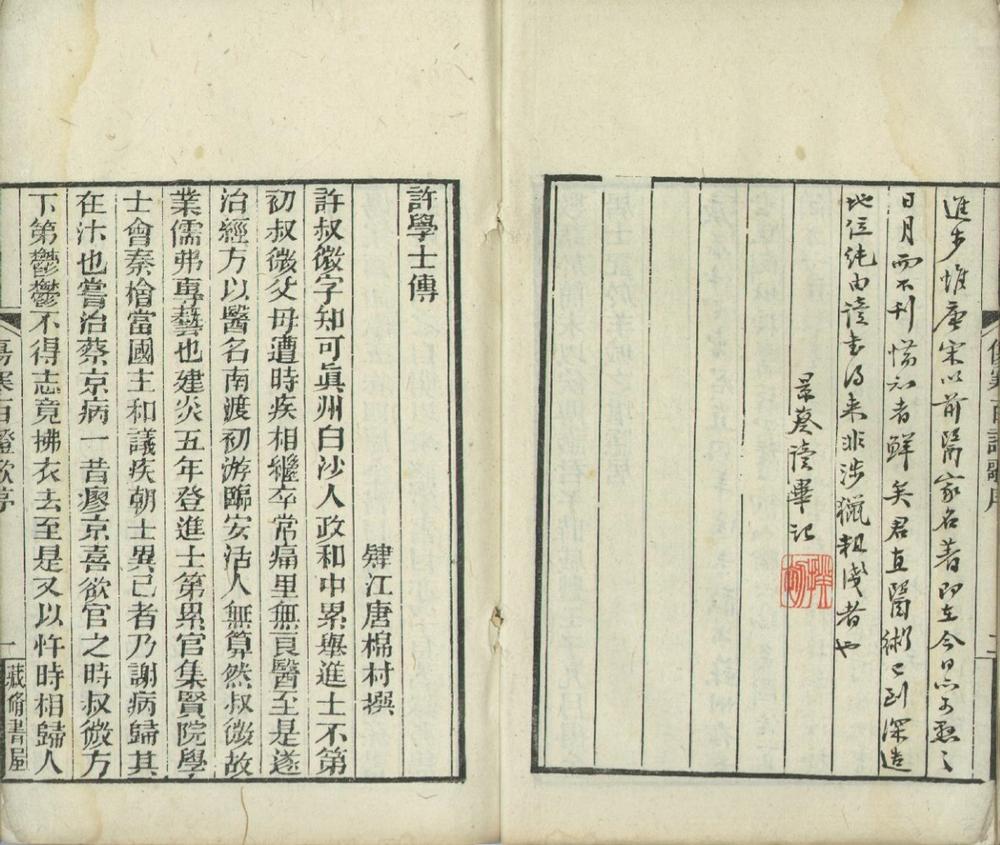 進步惟唐宋以前醫家名著即在今日亦可懸之
日月而不刊惜知者鮮矣君直醫術已到深造
地位純由讀書得來非涉獵粗淺者也
景葵讀畢記
許學士傳
肄江唐棉村撰
許叔微字知可眞州白沙人政和中累舉進士不第
初叔微父母遭時疾相繼卒常痛里無良醫至是遂
治經方以醫名南渡初游臨安活人無算然叔微故
業儒弗專藝也建炎五年登進士第累官集賢院學
士會秦檜當國主和議疾朝士異己者乃謝病歸其
在汴也嘗治蔡京病一昔瘳京喜欲官之時叔微方
下第鬱鬱不得志竟拂衣去至是又以忤時相歸人
傷寒百證歌序
一
藏脩書屋